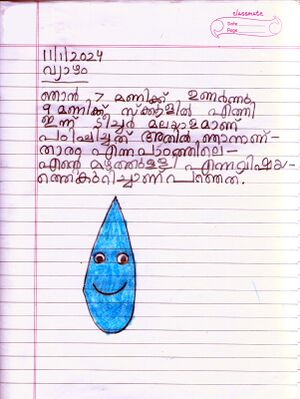 classmate
Date
Page
11/1/2024
വ്യാഴം
ഞാൻ 7 മണിക്ക് ഉണർന്നു
9 മണിക്ക് സ്ക്കൂളിൽ എത്തി
ഇന്ന് ടീച്ചർ മലയാളമാണ്
പഠിപ്പിച്ചത് അതിൽ ഞാനാണ്-
താരം എന്ന പാഠത്തിലെ-
എന്റെ മഴത്തുള്ളി എന്ന വിഷയ-
ത്തെകുറിച്ചാണ് പറഞ്ഞത.